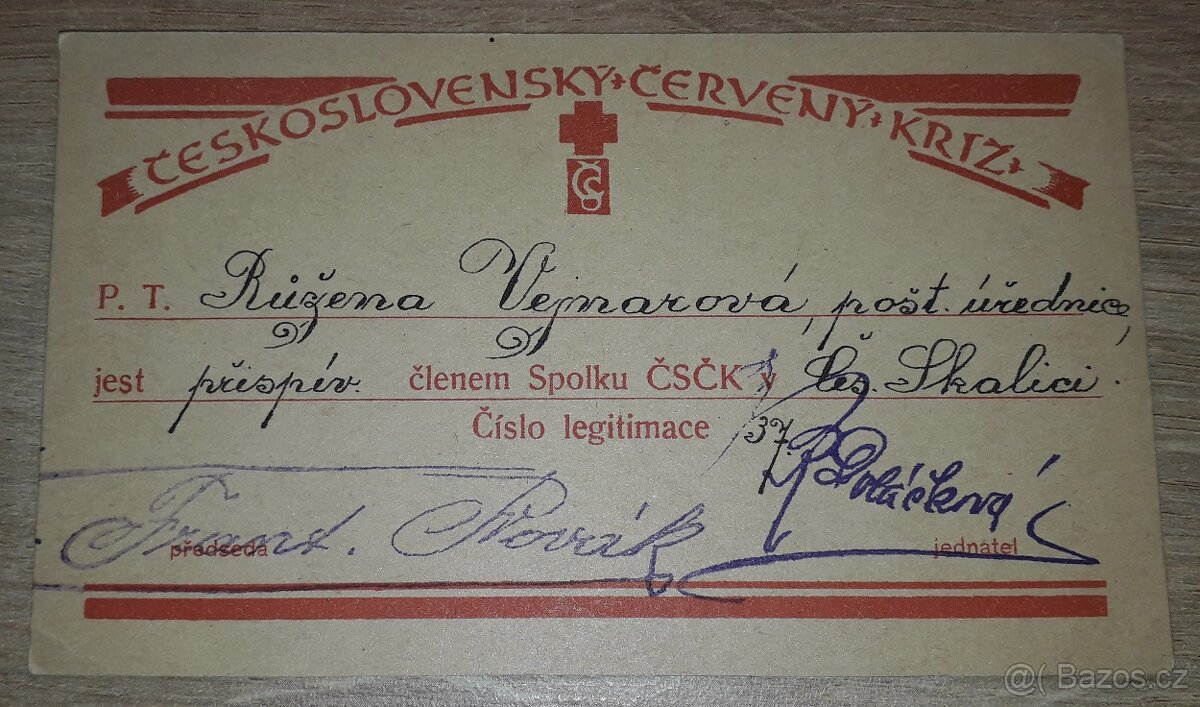 ČESKOSLOVENSKÝ ČERVENÝ KŘÍŽ
ČS
P. T. Růžena Vejnarová, pošt. úřednice,
jest přispív. členem Spolku ČSČK v Čes. Skalici.
Číslo legitimace 37.
Frant. Novák
předseda
jednatel
@( Bazos.cz